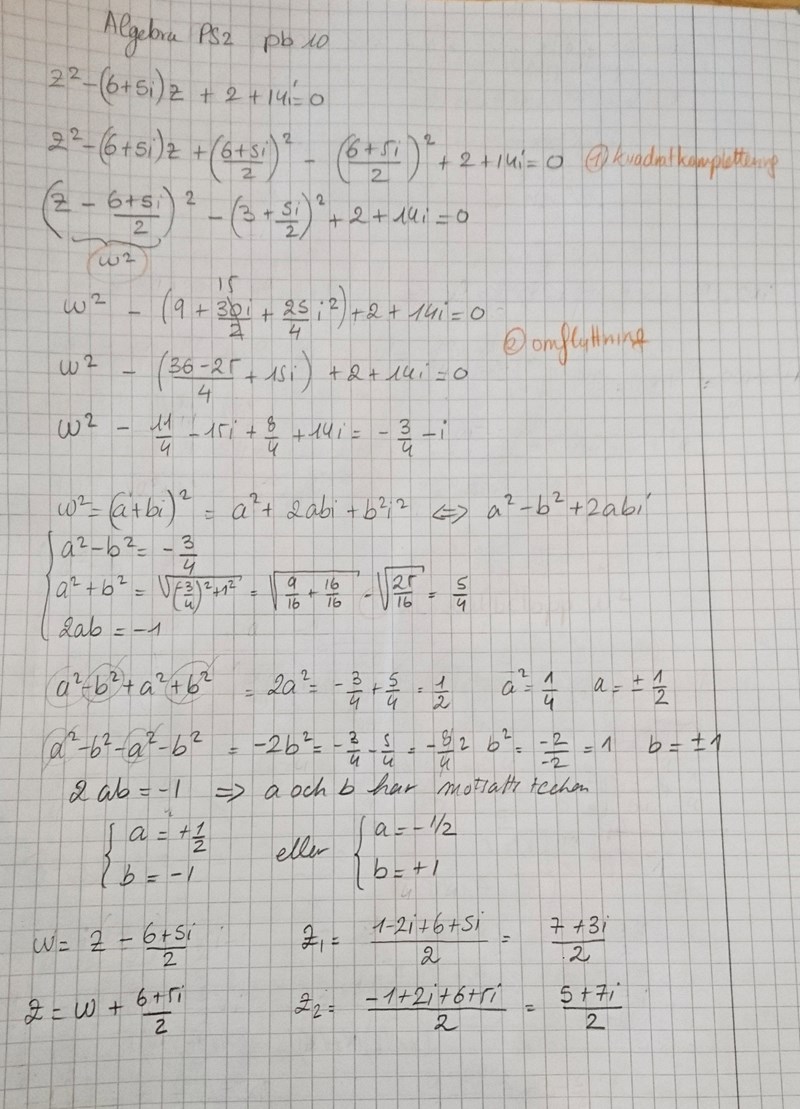 Algebra PS2 pb 10
z² - (6+5i)z + 2 + 14i = 0
z² - (6+5i)z + ((6+5i)/2)² - ((6+5i)/2)² + 2 + 14i = 0 ① kvadratkomplettering
(z - (6+5i)/2)² - (3 + 5i/2)² + 2 + 14i = 0
w²
w² - (9 + 30i/2 15 + 25/4 i²) + 2 + 14i = 0
② omflyttning
w² - ((36-25)/4 + 15i) + 2 + 14i = 0
w² - 11/4 - 15i + 8/4 + 14i = -3/4 - i
w² = (a+bi)² = a² + 2abi + b²i² ⇔ a² - b² + 2abi
a² - b² = -3/4
a² + b² = √((-3/4)² + 1²) = √(9/16 + 16/16) - √(25/16) = 5/4
2ab = -1
a² - b² + a² + b² = 2a² = -3/4 + 5/4 = 1/2 a² = 1/4 a = ± 1/2
a² - b² - a² - b² = -2b² = -3/4 - 5/4 = -8/4 2 b² = -2/-2 = 1 b = ±1
2ab = -1 ⇒ a och b har motsatt tecken
{ a = +1/2 eller { a = -1/2
b = -1 b = +1
w = z - (6+5i)/2 z₁ = (1-2i+6+5i)/2 = (7+3i)/2
z = w + (6+5i)/2 z₂ = (-1+2i+6+5i)/2 = (5+7i)/2